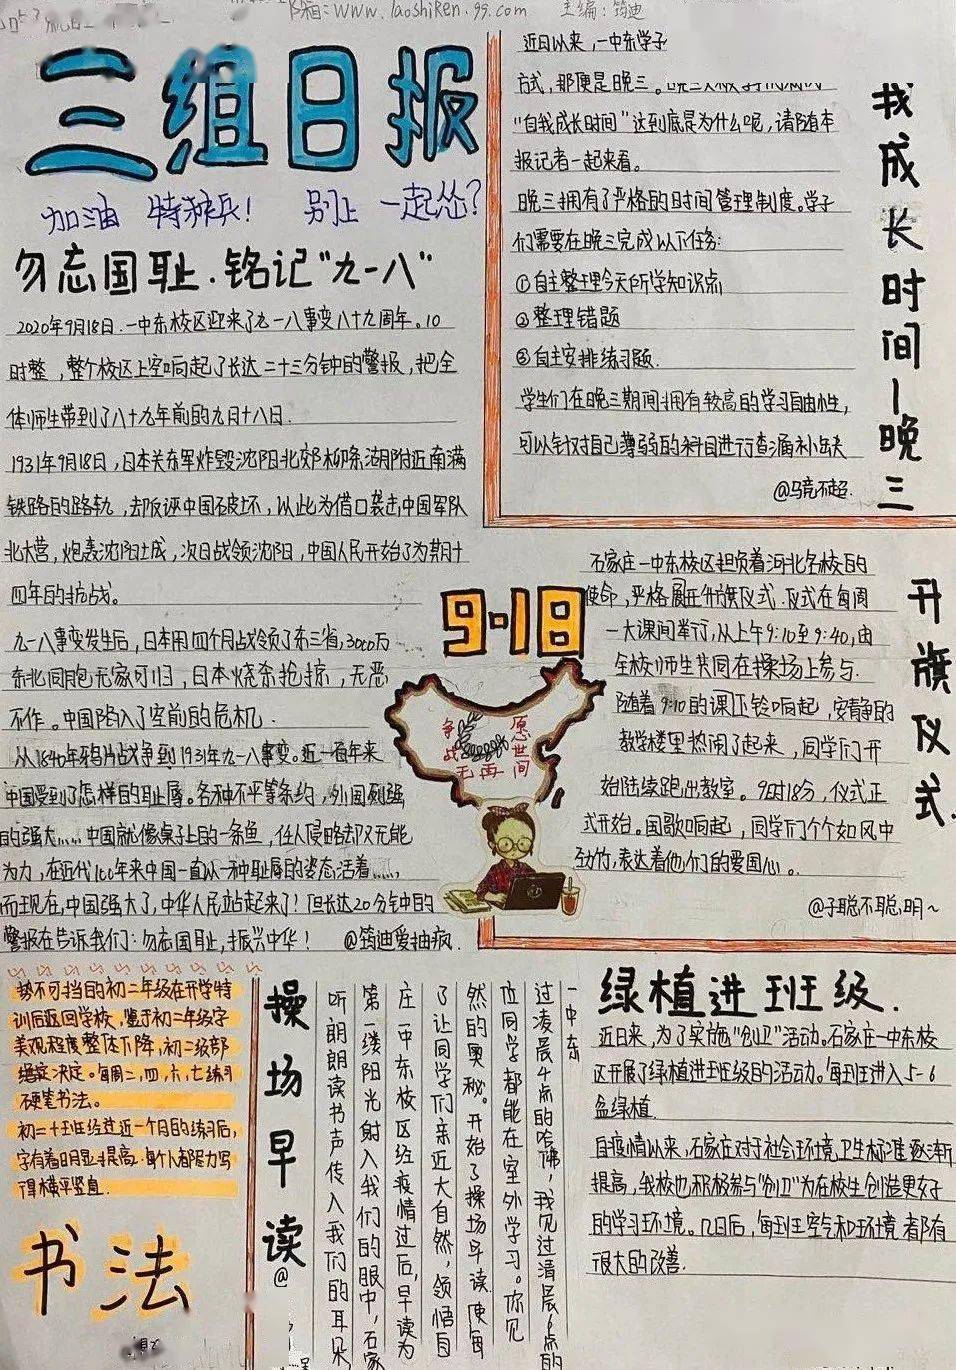 箱:www.laoshiren.99.com 主编:筠迪
三组日报
加油 特种兵! 别上 一起怂?
勿忘国耻.铭记“九一八”
2020年9月18日.一中东校区迎来了九一八事变八十九周年。10
时整,整个校区上空响起了长达二十三分钟的警报,把全
体师生带到了八十九年前的九月十八日.
1931年9月18日,日本关东军炸毁沈阳北郊柳条湖附近南满
铁路的路轨,却反诬中国破坏,以此为借口袭击中国军队
北大营,炮轰沈阳城,次日战领沈阳,中国人民开始了为期十
四年的抗战。
九一八事变发生后,日本用四个月战领了东三省,3000万
东北同胞无家可归,日本烧杀抢掠,无恶
不作。中国陷入了空前的危机.
从1840年鸦片战争到1931年九一八事变。近一百年来
中国受到了怎样的耻辱。各种不平等条约,外国列强
的强大……中国就像桌子上的一条鱼,任人侵略却又无能
为力,在近代100年来中国一直以一种耻辱的姿态活着……
而现在,中国强大了,中华人民站起来了!但长达20分钟中的
警报在告诉我们:勿忘国耻,振兴中华! @筠迪爱抽疯.
近日以来,一中东学子
方式,那便是晚三。
“自我成长时间”这到底是为什么呢,请随本
报记者一起来看。
晚三拥有了严格的时间管理制度。学子
们需要在晚三完成以下任务:
①自主整理今天所学知识点
②整理错题
③自主安排练习题.
学生们在晚三期间拥有较高的学习自由性,
可以针对自己薄弱的科目进行查漏补缺
@马竞不超.
我成长时间—晚三
9·18
争战无再愿世间
石家庄一中东校区担负着河北名校的
使命,严格展开升旗仪式.仪式在每周
一大课间举行,从上午9:10至9:40,由
全校师生共同在操场上参与.
随着9:10的课下铃响起,安静的
教学楼里热闹了起来,同学们开
始陆续跑出教室。9时18分,仪式正
式开始。国歌响起,同学们个个如风中
劲竹,表达着他们的爱国心。
@子聪不聪明~
升旗仪式.
势不可挡的初二年级在开学特
训后返回学校,鉴于初二年级字
美观程度整体下降,初二级部
继续决定。每周二,四,六,七练习
硬笔书法。
初二十班经过近一个月的练习后,
字有着明显提高.每个人都努力写
得横平竖直.
书法
操场早读
@
一中东
过凌晨4点的哈佛,我见过清晨6点的
位同学都能在室外学习。你见
然的奥秘。开始了操场早读,使每
了让同学们亲近大自然,领悟自
庄一中东校区经疫情过后,早读为
第一缕阳光射入我们的眼中,石家
听朗朗读书声传入我们的耳朵
绿植进班级.
近日来,为了实施“创卫”活动。石家庄一中东校
区开展了绿植进班级的活动。每班进入5-6
盆绿植.
自疫情以来,石家庄对于社会环境卫生标准逐渐
提高,我校也积极参与“创卫”为在校生创造更好
的学习环境。几日后,每班空气和环境都有
很大的改善.